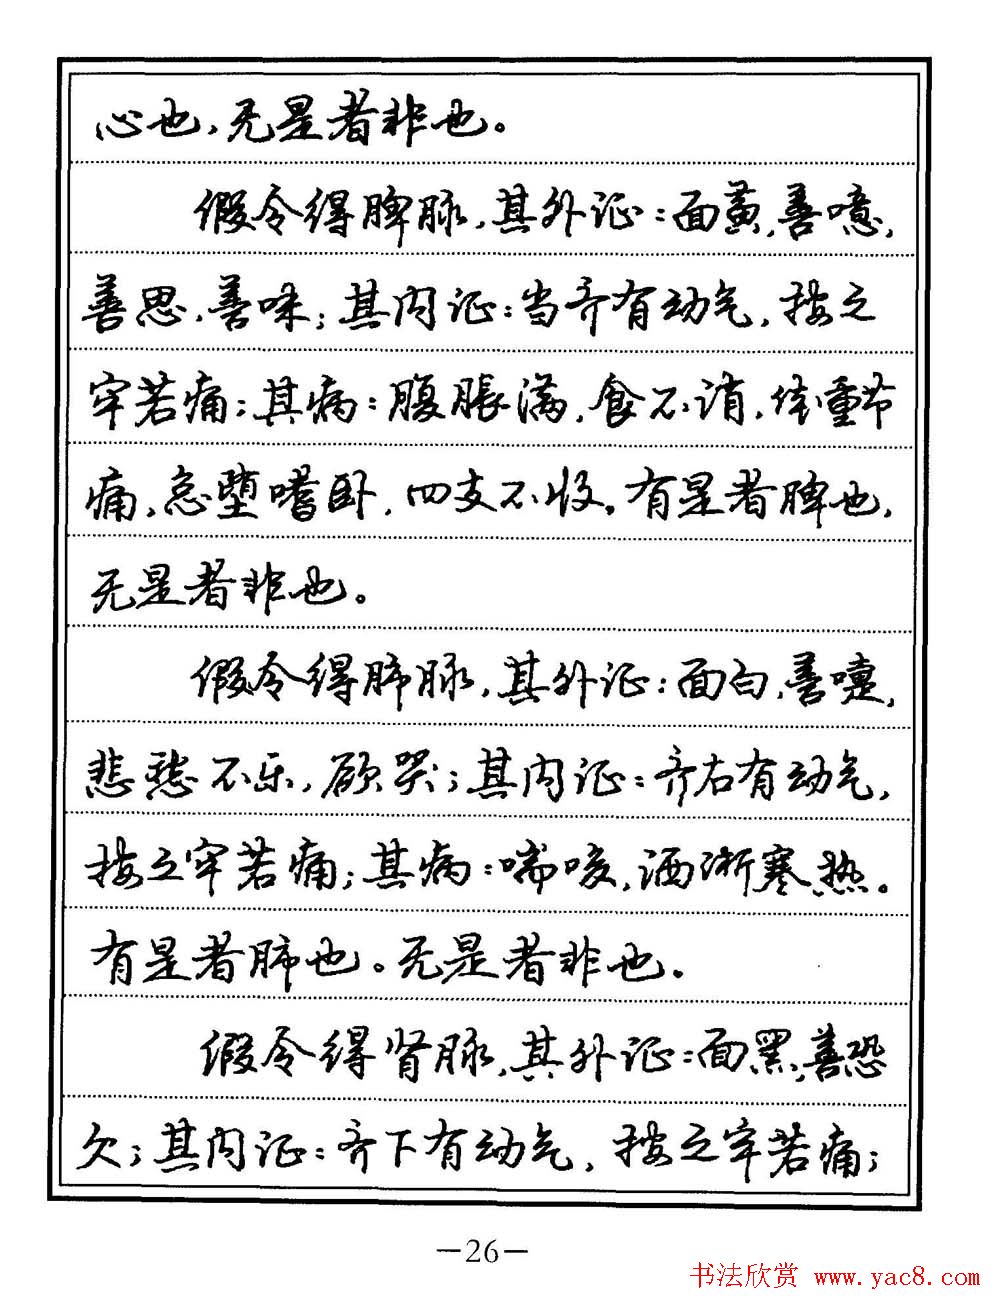 心也，无是者非也。
假令得脾脉，其外证：面黄，善噫，
善思，善味；其内证：当齐有动气，按之
牢若痛；其病：腹胀满，食不消，体重节
痛，怠堕嗜卧，四支不收。有是者脾也，
无是者非也。
假令得肺脉，其外证：面白，善嚏，
悲愁不乐，欲哭；其内证：齐右有动气，
按之牢若痛；其病：喘咳，洒淅寒热。
有是者肺也。无是者非也。
假令得肾脉，其外证：面黑，善恐
欠；其内证：齐下有动气，按之牢若痛；
—26—
书法欣赏 www.yac8.com